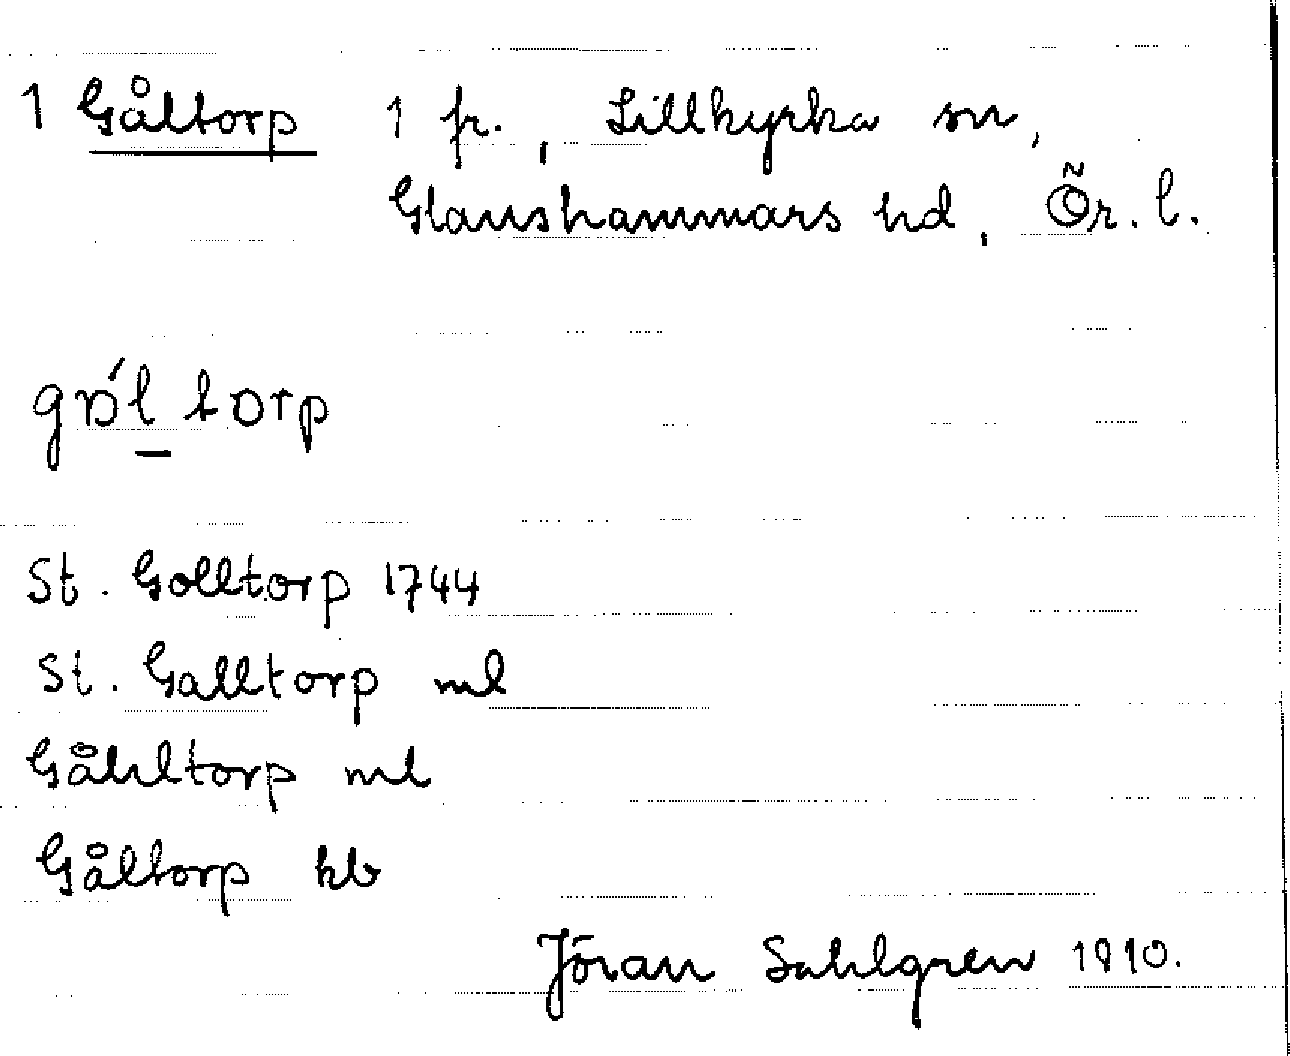 1 Gåltorp 1 fr., Lillkyrka sn,
Glanshammars hd, Ör. l.
gɒ́l torp
St. Golltorp 1744
St. Galltorp ml
Gåhltorp ml
Gåltorp kb
Jöran Sahlgren 1910.